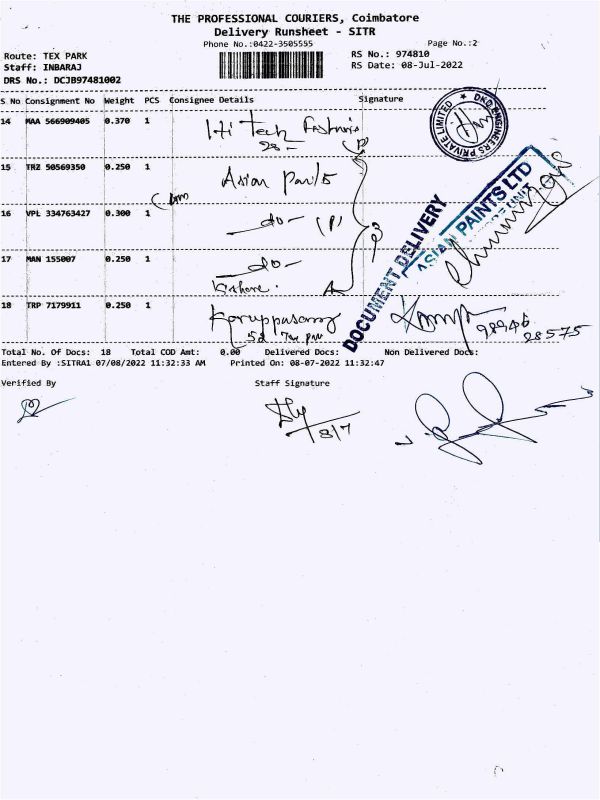 THE PROFESSIONAL COURIERS, Coimbatore
Delivery Runsheet - SITR
Phone No.:0422-3505555 Page No.:2
Route: TEX PARK RS No.: 974810
Staff: INBARAJ RS Date: 08-Jul-2022
DRS No.: DCJB97481002
S No Consignment No Weight PCS Consignee Details Signature
14 MAA 566909405 0.370 1 Hi Tech Fashions
28-
DKD ENGINEERS PRIVATE LIMITED
15 TRZ 50569350 0.250 1 Asian Paints
16 VPL 334763427 0.300 1 -do- (P)
17 MAN 155007 0.250 1 -do-
Kishore.
DOCUMENT DELIVERY
ASIAN PAINTS LTD
18 TRP 7179911 0.250 1 Karuppasamy
98946
28575
Total No. Of Docs: 18 Total COD Amt: 0.00 Delivered Docs: Non Delivered Docs:
Entered By :SITRA1 07/08/2022 11:32:33 AM Printed On: 08-07-2022 11:32:47
Verified By Staff Signature
8/7